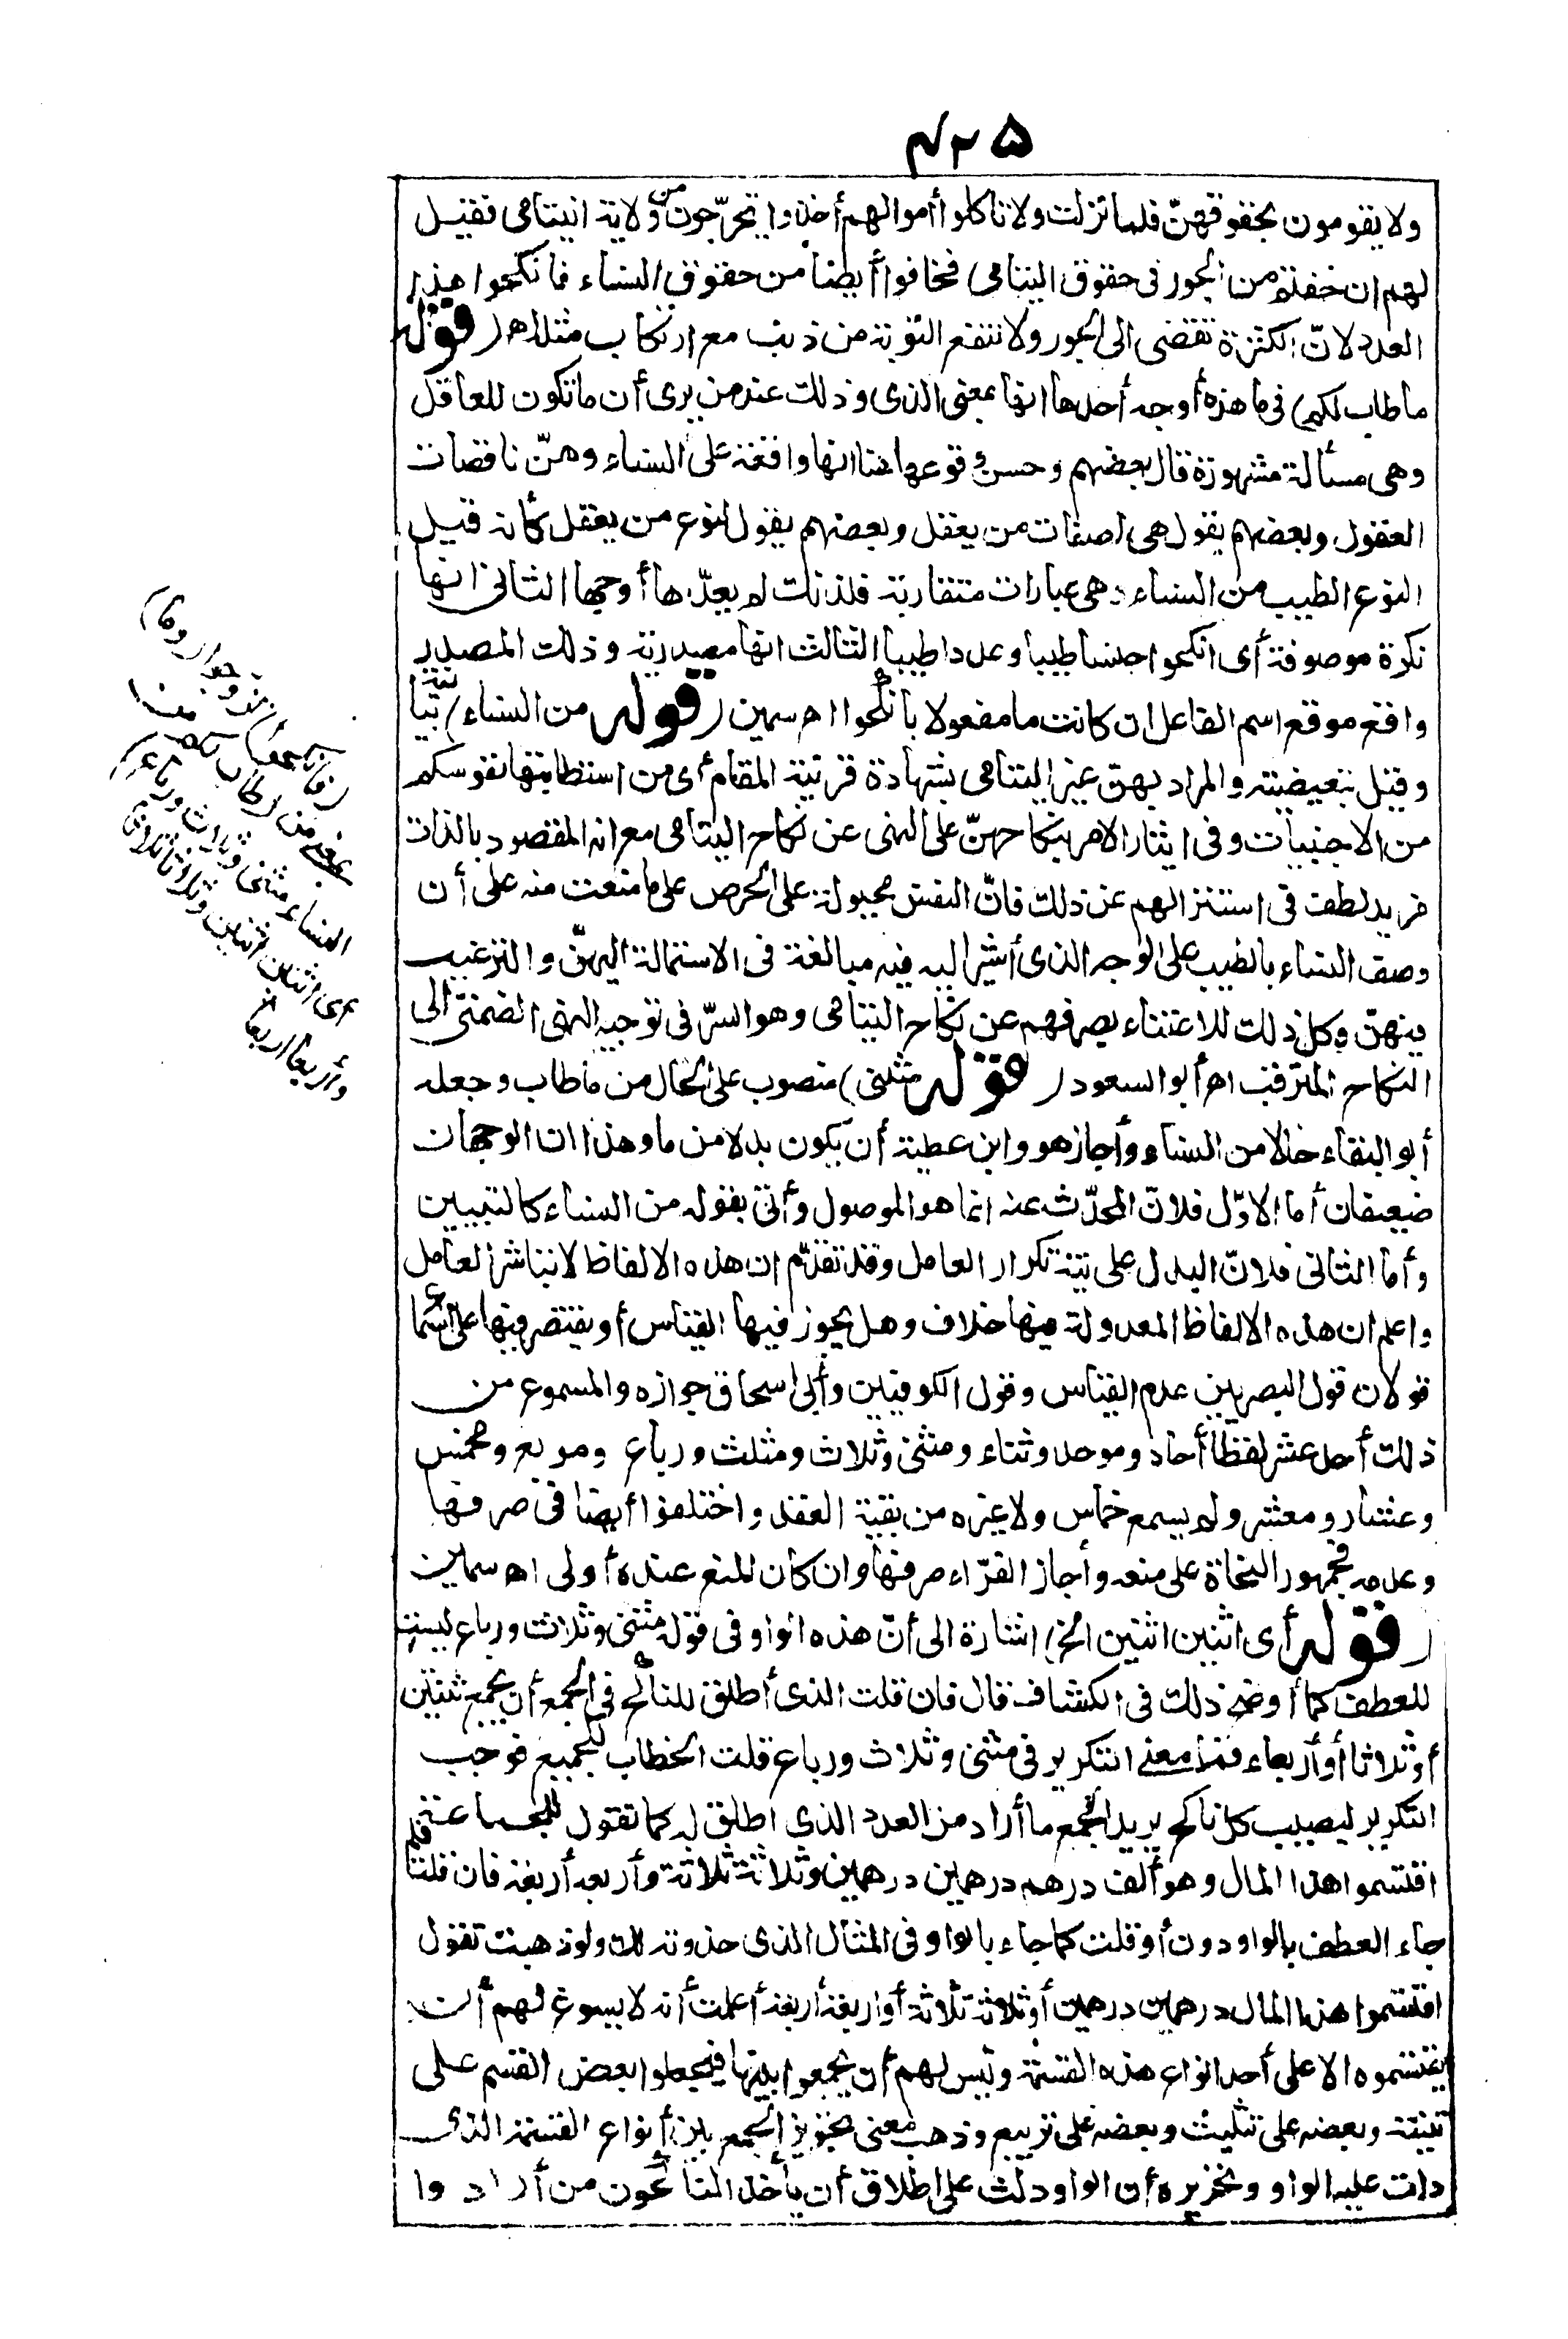 ٤٢٥
ولا يقومون بحقوقهنّ فلما نزلت ولا تأكلوا أموالهم أخذوا يتحرّجون من ولاية اليتامى فقيل
لهم ان خفتم من الجور فى حقوق اليتامى فخافوا أيضا من حقوق النساء فانكحوا هذا
العدد لانّ الكثرة تفضى الى الجور ولا تنفع التوبة من ذنب مع ارتكاب مثله اهـ (قوله
ما طاب لكم) فى ما هذه أوجه أحدها انها بمعنى الذى وذلك عند من يرى أن ما تكون للعاقل
وهى مسألة مشهورة قال بعضهم وحسن وقوعها هنا انها واقعة على النساء وهنّ ناقصات
العقول وبعضهم يقول هى لصفات من يعقل وبعضهم يقول لنوع من يعقل كأنه قيل
النوع الطيب من النساء وهى عبارات متقاربة فلذلك لم يعدّها أوجها الثانى انها
نكرة موصوفة أى انكحوا جنسا طيبا وعددا طيبا الثالث انها مصدرية وذلك المصدر
واقع موقع اسم الفاعل ان كانت ما مفعولا بانكحوا اهـ سمين (قوله من النساء) بيانية
وقيل تبعيضية والمراد بهنّ غير اليتامى بشهادة قرينة المقام أى من استطابتها نفوسكم
من الاجنبيات وفى ايثار الامر بنكاحهنّ على النهى عن نكاح اليتامى مع انه المقصود بالذات
مزيد لطف فى استنزالهم عن ذلك فانّ النفس مجبولة على الحرص على ما منعت منه على أن
وصف النساء بالطيب على الوجه الذى أشير اليه فيه مبالغة فى الاستمالة اليهنّ والترغيب
فيهنّ وكل ذلك للاعتناء بصرفهم عن نكاح اليتامى وهو السرّ فى توجيه النهى الضمنىّ الى
النكاح المترقب اهـ أبو السعود (قوله مثنى) منصوب على الحال من ما طاب وجعله
أبو البقاء حالا من النساء وأجاز هو وابن عطية أن يكون بدلا من ما وهذان الوجهان
ضعيفان أما الاوّل فلانّ المحدّث عنه انما هو الموصول وأتى بقوله من النساء كالتبيين
وأما الثانى فلانّ البدل على نية تكرار العامل وقد تقدّم ان هذه الالفاظ لا تباشر العامل
واعلم ان هذه الالفاظ المعدولة فيها خلاف وهل يجوز فيها القياس أو يقتصر فيها على السماع
قولان قول البصريين عدم القياس وقول الكوفيين وأبى اسحاق جوازه والمسموع من
ذلك أحد عشر لفظا أحاد وموحد وثناء ومثنى وثلاث ومثلث ورباع ومربع ومخمس
وعشار ومعشر ولم يسمع خماس ولا غيره من بقية العقد واختلفوا أيضا فى صرفها
وعدمه فجمهور النحاة على منعه وأجاز الفرّاء صرفها وان كان المنع عنده أولى اهـ سمين
(قوله أى اثنين اثنين الخ) اشارة الى أنّ هذه الواو فى قوله مثنى وثلاث ورباع ليست
للعطف كما أوضح ذلك فى الكشاف قال فان قلت الذى أطلق للناكح فى الجمع أن يجمع ثنتين
أو ثلاثا أو أربعا فما معنى التكرير فى مثنى وثلاث ورباع قلت الخطاب للجميع فوجب
التكرير ليصيب كل ناكح يريد الجمع ما أراد من العدد الذى اطلق له كما تقول للجماعة
اقتسموا هذا المال وهو ألف درهم درهمين درهمين وثلاثة ثلاثة وأربعة أربعة فان قلت فلم
جاء العطف بالواو دون أو قلت كما جاء بالواو فى المثال الذى حذوته لك ولو ذهبت تقول
اقتسموا هذا المال درهمين درهمين أو ثلاثة ثلاثة أو اربعة أربعة أعلمت أنه لا يسوغ لهم أن
يقتسموه الا على أحد انواع هذه القسمة وليس لهم أن يجمعوا بينها فيجعلوا بعض القسم على
تثنية وبعضه على تثليث وبعضه على تربيع وذهب معنى تجويز الجمع بين أنواع القسمة الذى
دلت عليه الواو وتحريره أن الواو دلت على اطلاق أن يأخذ الناكحون من أرادوا
(فانكحوا) تزوجوا (ما)
بمعنى من (طاب لكم من
النساء مثنى وثلاث ورباع)
أى اثنين اثنين وثلاثا ثلاثا
وأربعا أربعا